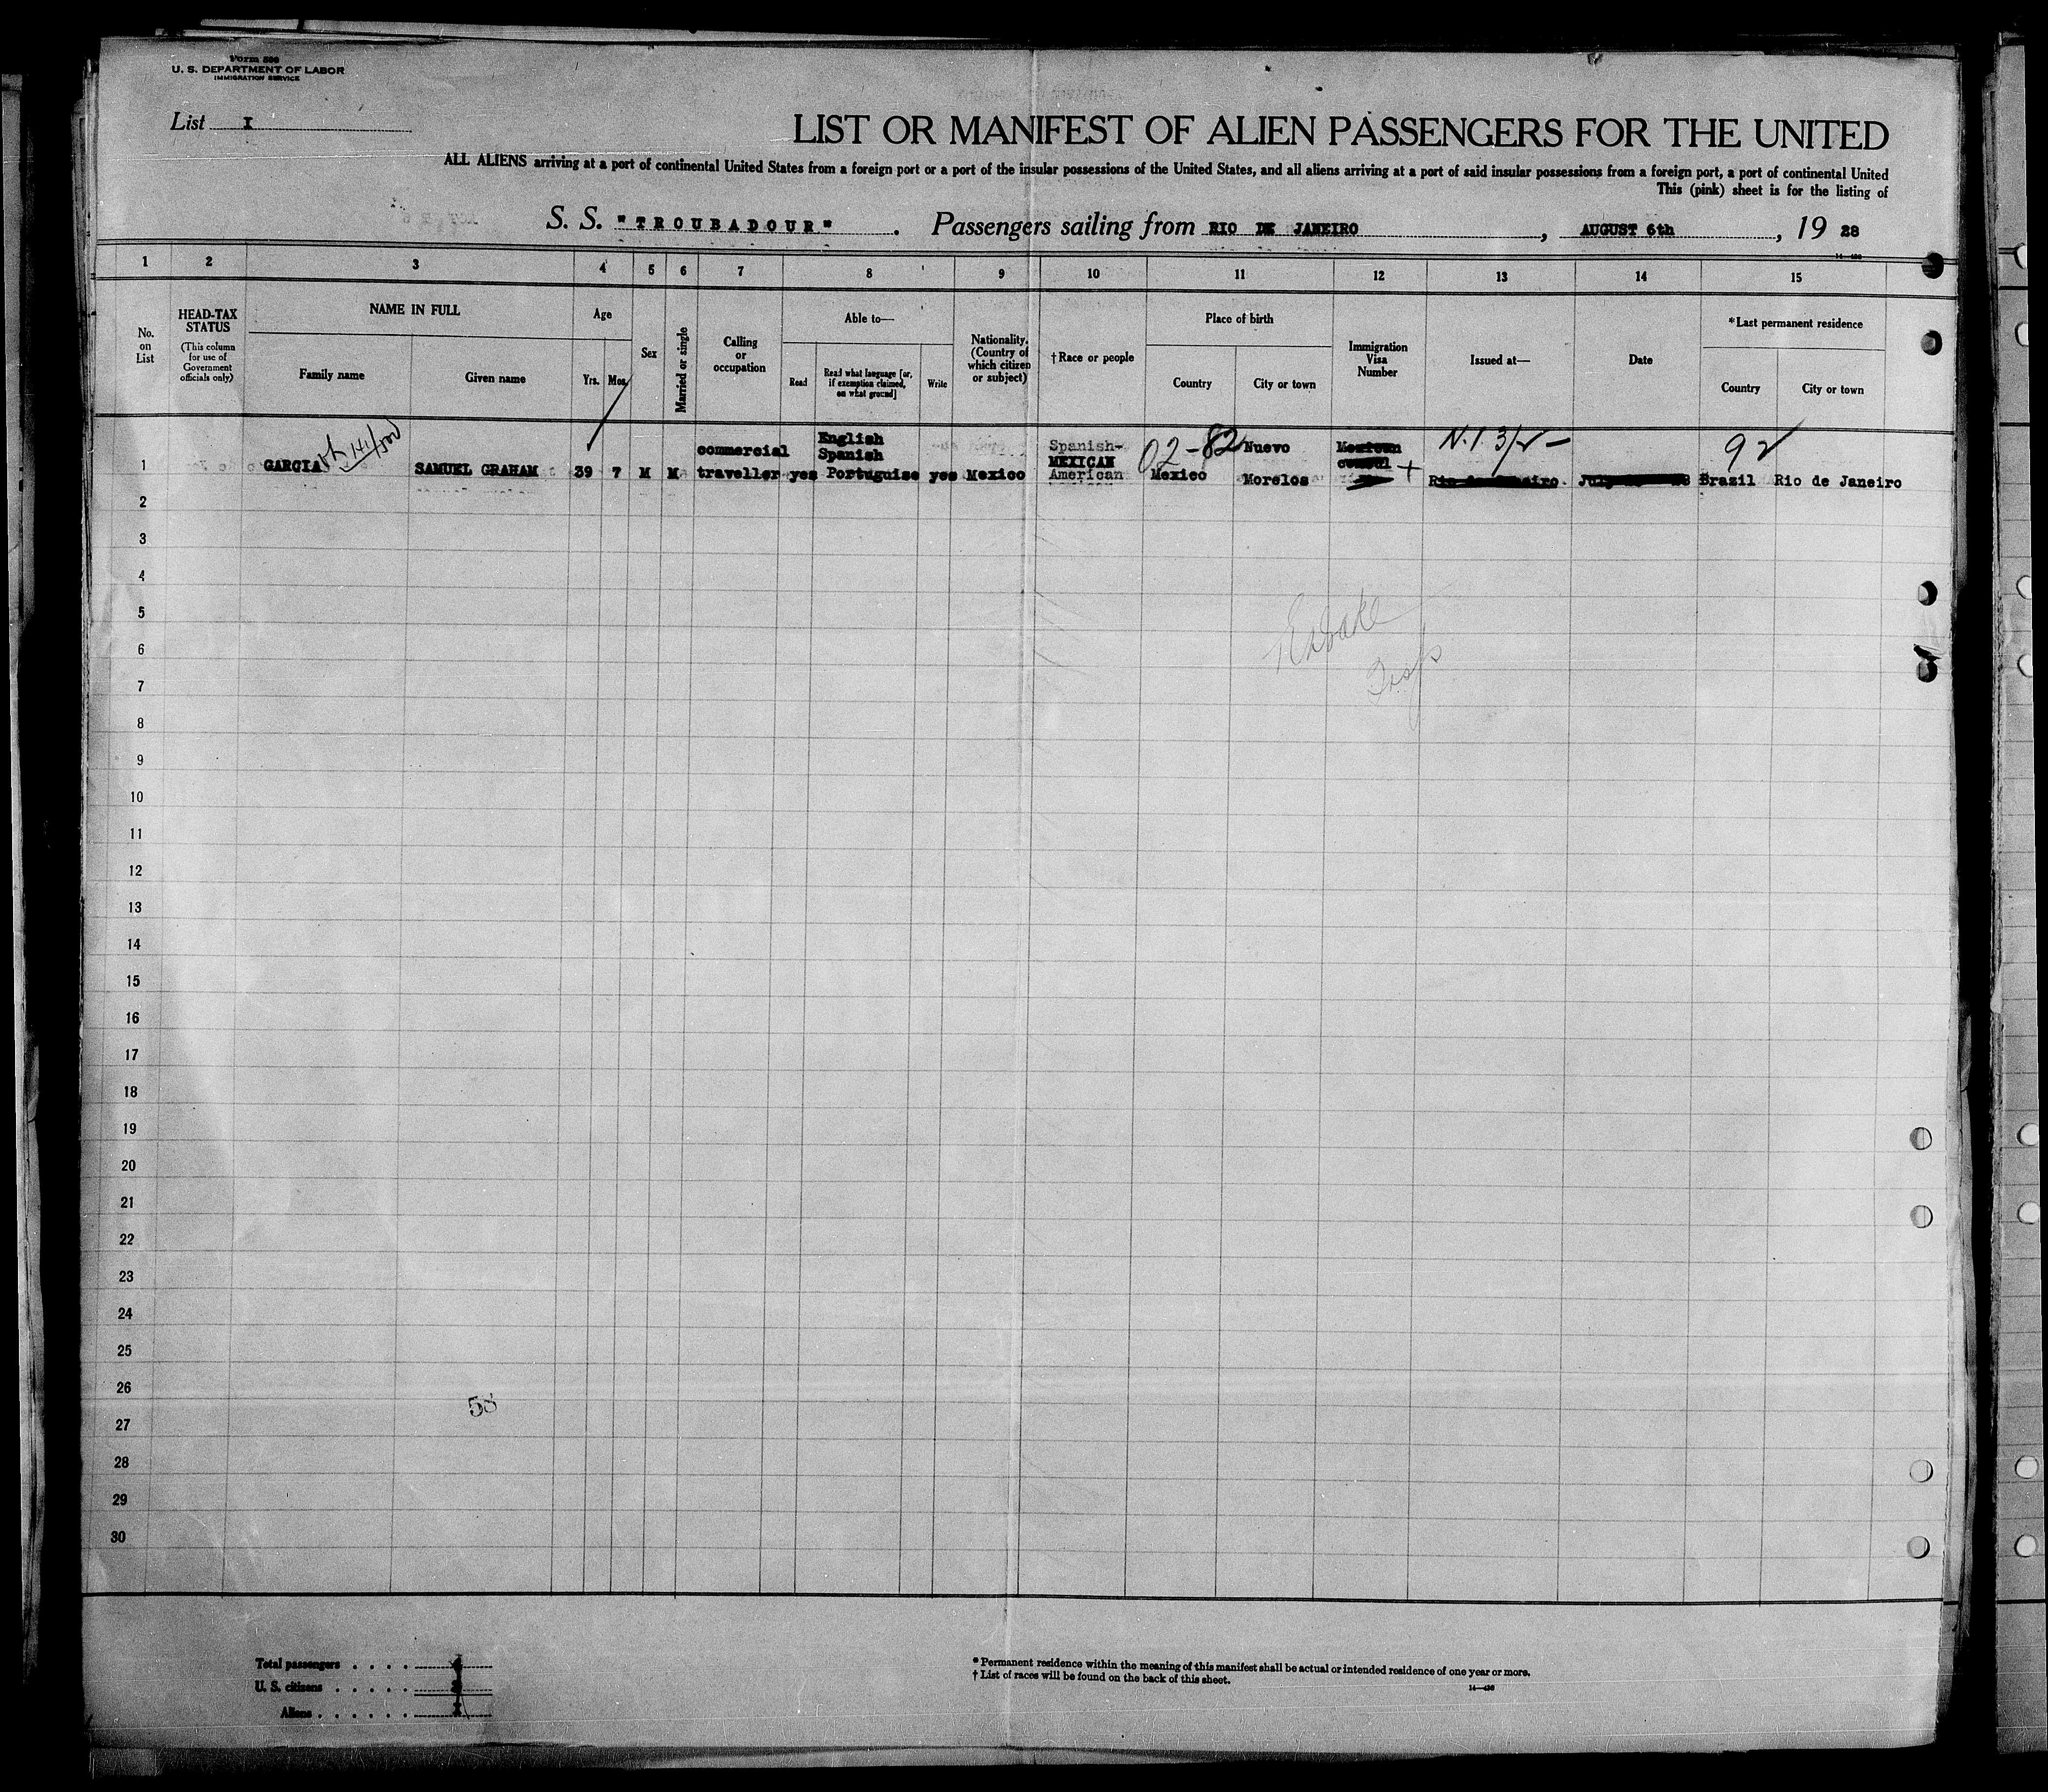 Form 500
U. S. DEPARTMENT OF LABOR
IMMIGRATION SERVICE
List I
LIST OR MANIFEST OF ALIEN PASSENGERS FOR THE UNITED
ALL ALIENS arriving at a port of continental United States from a foreign port or a port of the insular possessions of the United States, and all aliens arriving at a port of said insular possessions from a foreign port, a port of continental United
This (pink) sheet is for the listing of
S. S. "TROUBADOUR". Passengers sailing from RIO DE JANEIRO, AUGUST 6th, 19 28
1 2 3 4 5 6 7 8 9 10 11 12 13 14 15
No. on List
HEAD-TAX STATUS
(This column for use of Government officials only)
NAME IN FULL
Family name
Given name
Age
Yrs.
Mos.
Sex
Married or single
Calling or occupation
Able to—
Read
Read what language [or, if exemption claimed, on what ground]
Write
Nationality. (Country of which citizen or subject)
†Race or people
Place of birth
Country
City or town
Immigration Visa Number
Issued at—
Date
*Last permanent residence
Country
City or town
1 GARCIA SAMUEL GRAHAM 39 7 M M commercial traveller yes English Spanish Portuguise yes Mexico Spanish-MEXICAN American 02-82 Mexico Nuevo Morelos Mexican consul Rio de Janeiro July Brazil Rio de Janeiro
92
2
3
4
5
6
7
8
9
10
11
12
13
14
15
16
17
18
19
20
21
22
23
24
25
26
58
27
28
29
30
Total passengers . . . .
U. S. citizens . . . . .
Aliens . . . . . . 1
* Permanent residence within the meaning of this manifest shall be actual or intended residence of one year or more.
† List of races will be found on the back of this sheet.